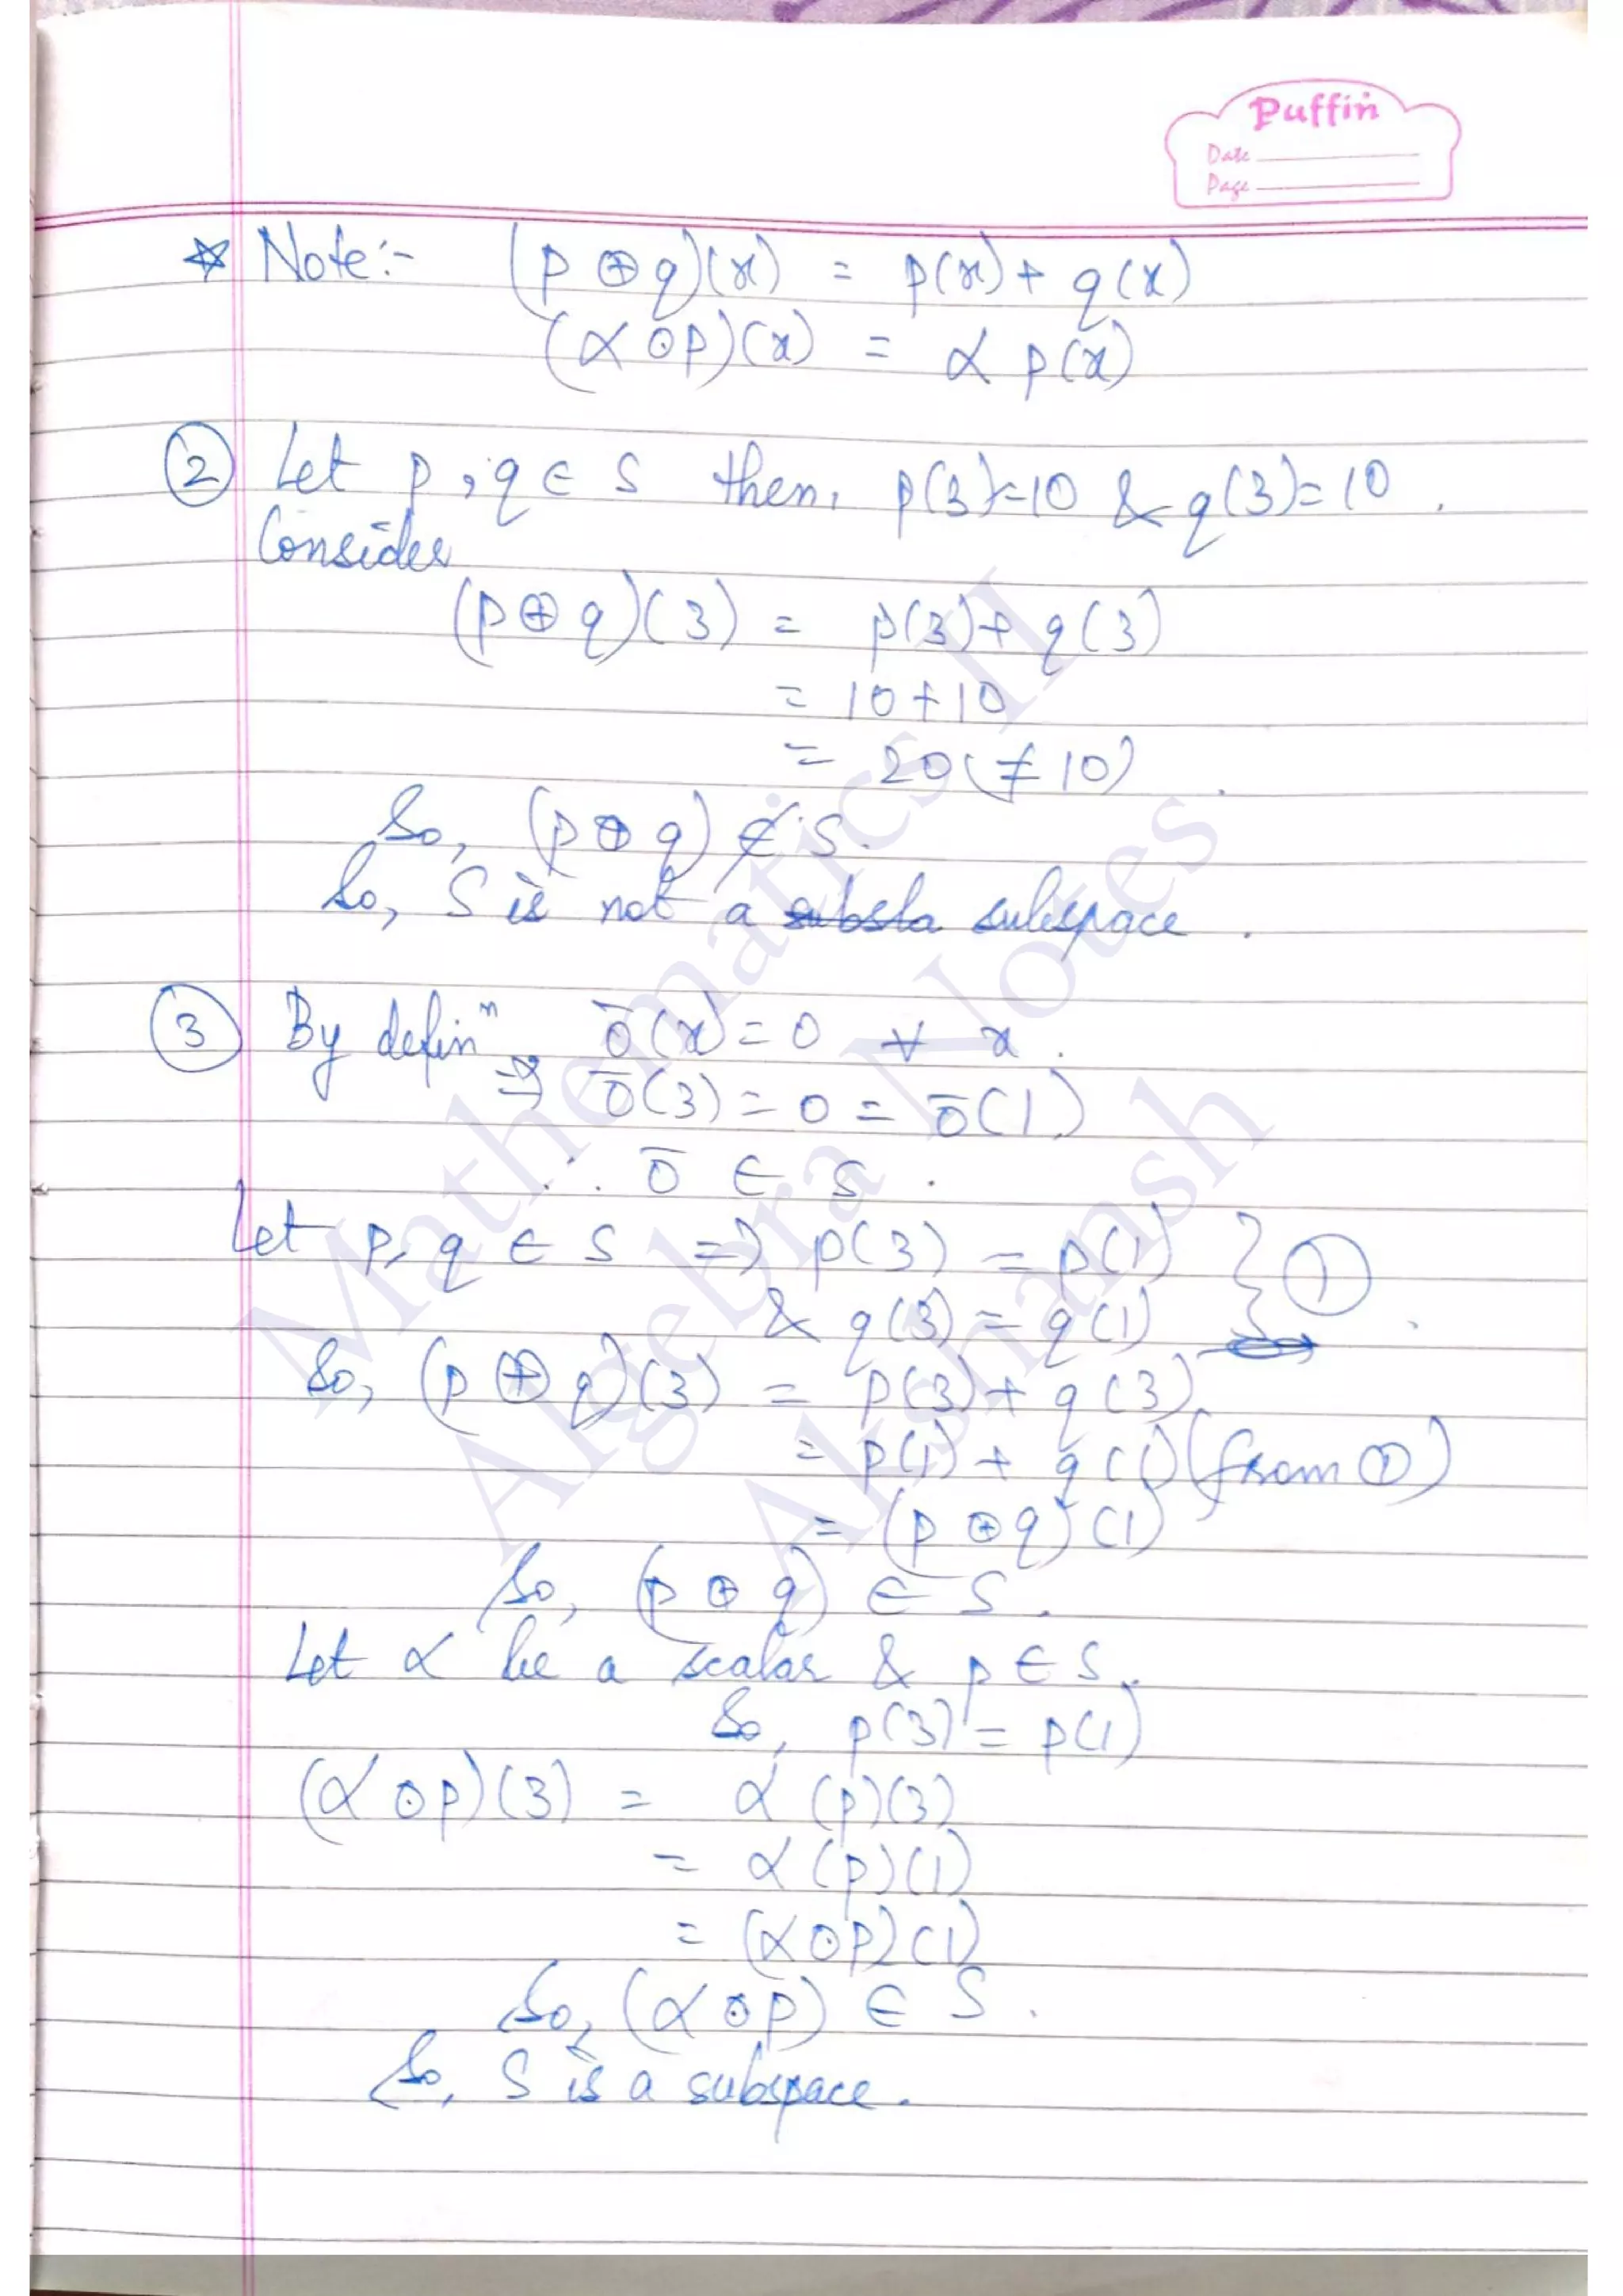 Puffin
Date
Page
☆ Note:- (p ⊕ q)(x) = p(x) + q(x)
(α ⊙ p)(x) = α p(x)
② Let p, q ∈ S then, p(3)=10 & q(3)=10.
Consider
(p ⊕ q)(3) = p(3) + q(3)
= 10 + 10
= 20 (≠ 10).
So, (p ⊕ q) ∉ S.
So, S is not a subspace.
③ By definⁿ ō(x) = 0 ∀ x.
⇒ ō(3) = 0 = ō(1)
∴ ō ∈ S.
Let p, q ∈ S => p(3) = p(1) } ①
& q(3) = q(1) .
So, (p ⊕ q)(3) = p(3) + q(3)
= p(1) + q(1) (from ①)
= (p ⊕ q)(1)
So, (p ⊕ q) ∈ S.
Let α be a scalar & p ∈ S.
So, p(3) = p(1)
(α ⊙ p)(3) = α (p)(3)
= α (p)(1)
= (α ⊙ p)(1)
So, (α ⊙ p) ∈ S.
So, S is a subspace.
Mathematics II
Algebra Notes
Akshansh